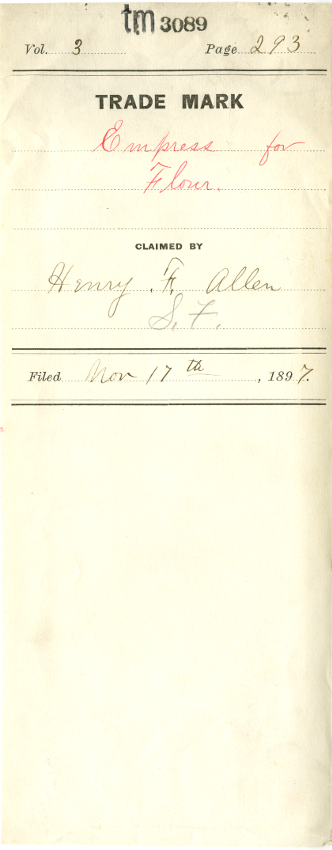 tm 3089
Vol. 3 Page 293
TRADE MARK
Empress for
Flour.
CLAIMED BY
Henry F. Allen
S.F.
Filed Nov 17th, 1897.